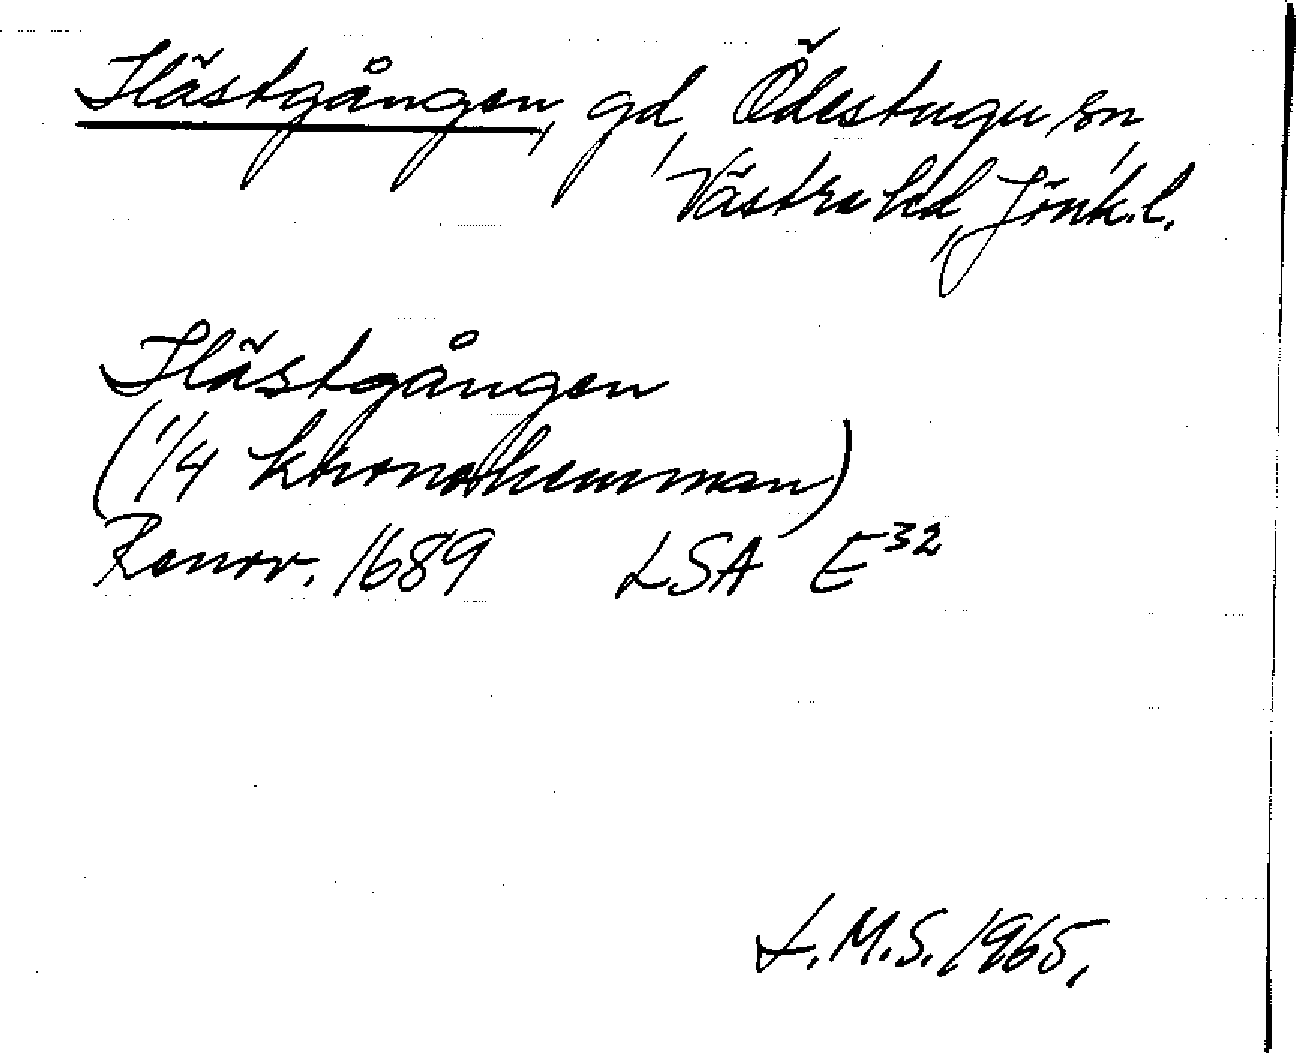 Hästgången, gd, Ödestugu sn,
Västra hd, Jönk.l.
Hästgången
(1/4 kronohemman)
Renov. 1689 LSA E32
L.M.S. 1965.